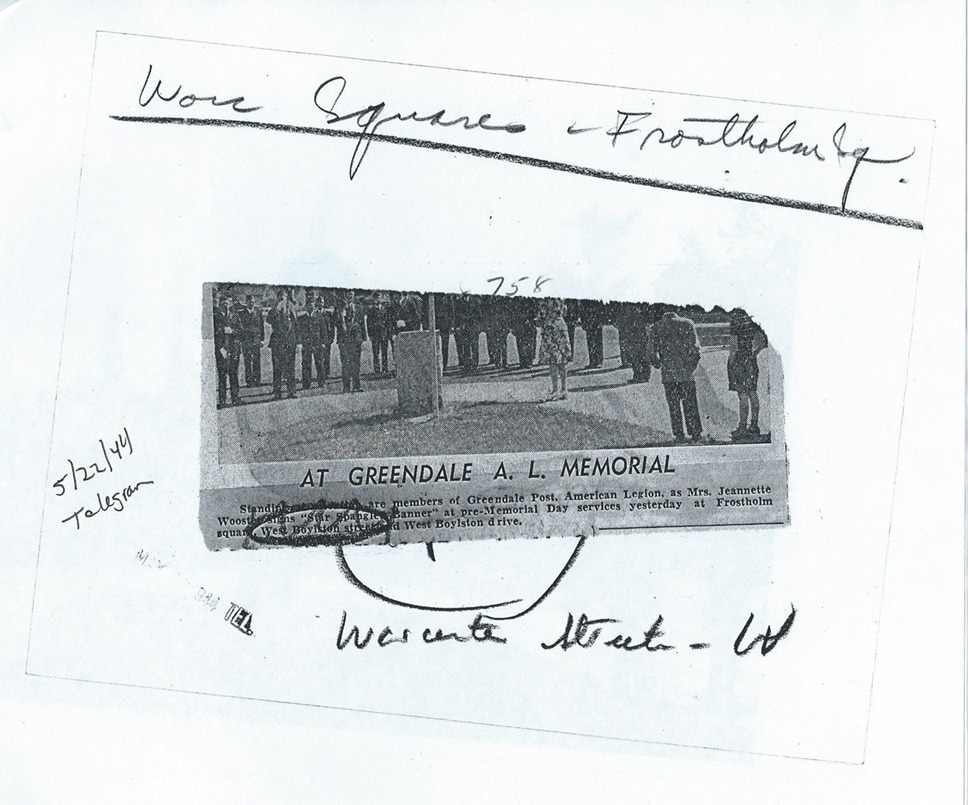 Worc Squares - Frostholm Sq.
758
AT GREENDALE A. L. MEMORIAL
Standing are members of Greendale Post, American Legion, as Mrs. Jeannette
"Star Spangled Banner" at pre-Memorial Day services yesterday at Frostholm
square, West Boylston street and West Boylston drive.
5/22/44
Telegram
TEL.
Worcester Streets - W